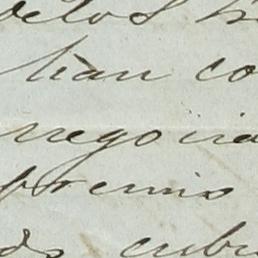 delos
han co
negocia
premio
cubr